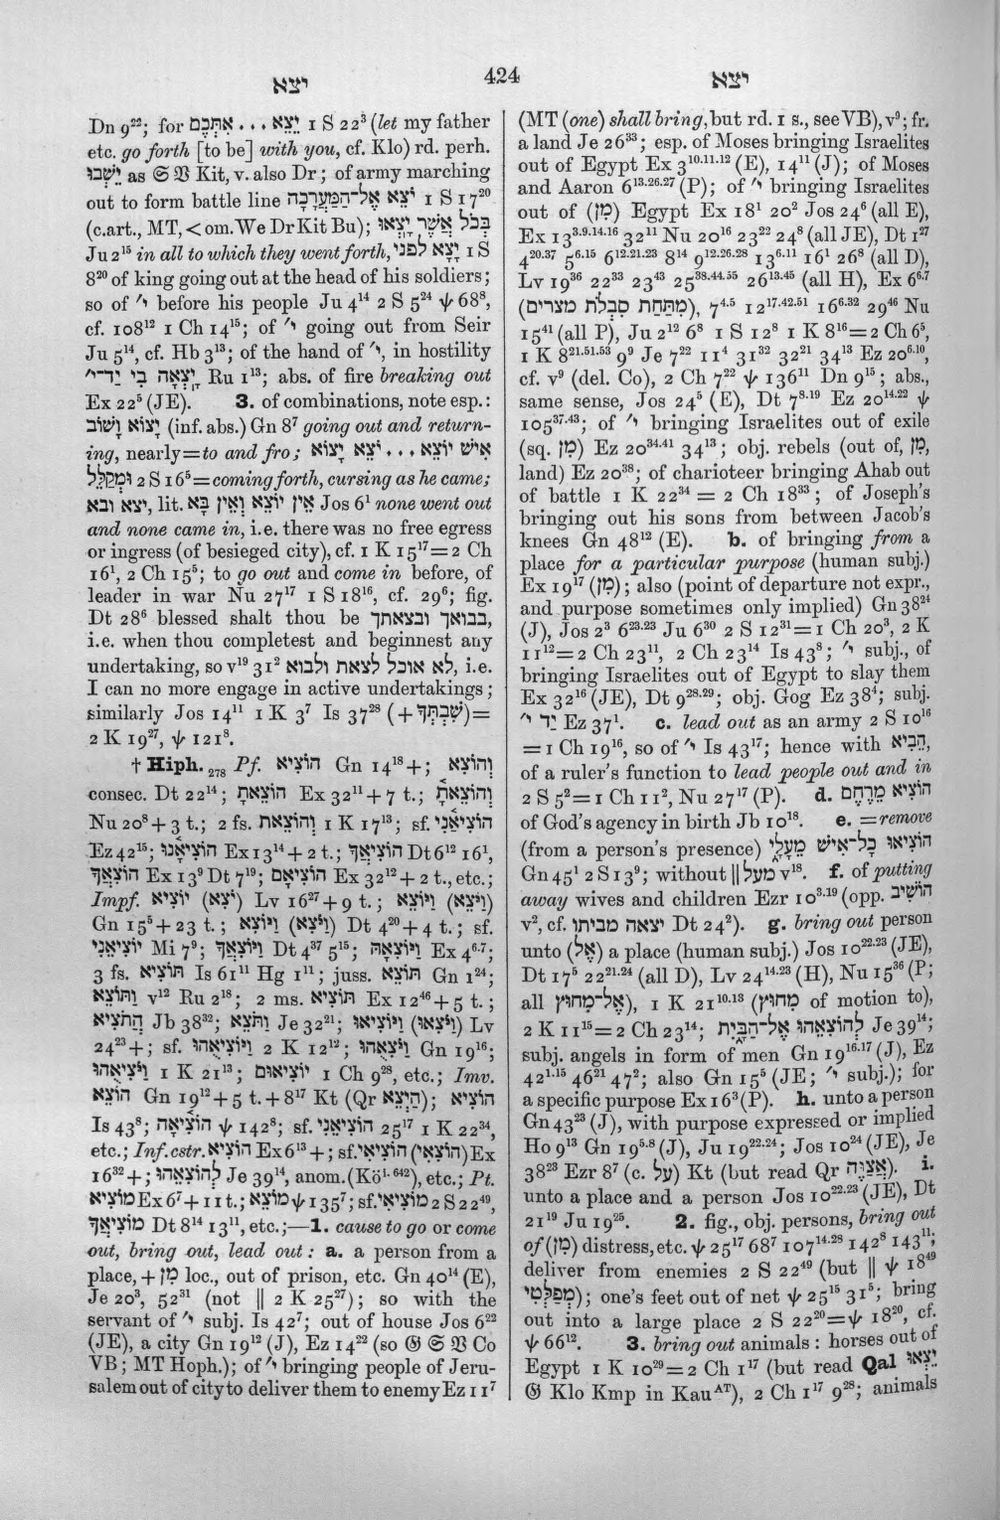 יצא
424
יצא
Dn 9²²; for יָצָא ... אִתְּכֶם 1 S 22³ (let my father
etc. go forth [to be] with you, cf. Klo) rd. perh.
as 𝔖 𝔙 Kit, v. also Dr; of army marching
out to form battle line יֹצֵא אֶל־הַמַּעֲרָכָה 1 S 17²⁰
(c.art., MT, < om. We Dr Kit Bu); בְּכֹל אֲשֶׁר יָצְאוּ
Ju 2¹⁵ in all to which they went forth, יָצָא לִפְנֵי 1 S
8²⁰ of king going out at the head of his soldiers;
so of י׳ before his people Ju 4¹⁴ 2 S 5²⁴ ψ 68⁸,
cf. 108¹² 1 Ch 14¹⁵; of י׳ going out from Seir
Ju 5¹⁴, cf. Hb 3¹³; of the hand of י׳, in hostility
יָצְאָה בִי יַד־י׳ Ru 1¹³; abs. of fire breaking out
Ex 22⁵ (JE). 3. of combinations, note esp.:
יָצוֹא וָשׁוֹב (inf. abs.) Gn 8⁷ going out and return-
ing, nearly = to and fro; אִישׁ יוֹצֵא ... יֹצֵא יָצוֹא
וּמְקַלֵּל 2 S 16⁵ = coming forth, cursing as he came;
יצא ובא, lit. אֵין יוֹצֵא וְאֵין בָּא Jos 6¹ none went out
and none came in, i.e. there was no free egress
or ingress (of besieged city), cf. 1 K 15¹⁷ = 2 Ch
16¹, 2 Ch 15⁵; to go out and come in before, of
leader in war Nu 27¹⁷ 1 S 18¹⁶, cf. 29⁶; fig.
Dt 28⁶ blessed shalt thou be בבואך ובצאתך,
i.e. when thou completest and beginnest any
undertaking, so v¹⁹ 31² לא אוכל לצאת ולבוא, i.e.
I can no more engage in active undertakings;
similarly Jos 14¹¹ 1 K 3⁷ Is 37²⁸ (+ שִׁבְתְּךָ) =
2 K 19²⁷, ψ 121⁸.
† Hiph. ₂₇₈ Pf. הוֹצִיא Gn 14¹⁸ +; וְהוֹצִא
consec. Dt 22¹⁴; הוֹצֵאתָ Ex 32¹¹ + 7 t.; וְהוֹצֵאתָ
Nu 20⁸ + 3 t.; 2 fs. וְהוֹצֵאת 1 K 17¹³; sf. הוֹצִיאַנִי
Ez 42¹⁵; הוֹצִיאָנוּ Ex 13¹⁴ + 2 t.; הוֹצִיאֲךָ Dt 6¹² 16¹,
הוֹצִאֲךָ Ex 13⁹ Dt 7¹⁹; הוֹצִיאָם Ex 32¹² + 2 t., etc.;
Impf. יוֹצִיא (יֹצִא) Lv 16²⁷ + 9 t.; וַיּוֹצֵא (וַיֹּצֵא)
Gn 15⁵ + 23 t.; וַיּוֹצִא (וַיֹּצִא) Dt 4²⁰ + 4 t.; sf.
יוֹצִיאֵנִי Mi 7⁹; וַיּוֹצִאֲךָ Dt 4³⁷ 5¹⁵; וַיּוֹצִאָהּ Ex 4⁶·⁷;
3 fs. תּוֹצִיא Is 61¹¹ Hg 1¹¹; juss. תּוֹצֵא Gn 1²⁴;
וַתּוֹצֵא v¹² Ru 2¹⁸; 2 ms. תּוֹצִיא Ex 12⁴⁶ + 5 t.;
הֲתֹצִיא Jb 38³²; וַתֹּצֵא Je 32²¹; וַיּוֹצִיאוּ (וַיֹּצִאוּ) Lv
24²³ +; sf. וַיּוֹצִיאֻהוּ 2 K 12¹²; וַיֹּצִאֻהוּ Gn 19¹⁶;
וַיֹּצִיאֻהוּ 1 K 21¹³; יוֹצִיאוּם 1 Ch 9²⁸, etc.; Imv.
הוֹצֵא Gn 19¹² + 5 t. + 8¹⁷ Kt (Qr הַיְצֵא); הוֹצִיא
Is 43⁸; הוֹצִיאָה ψ 142⁸; sf. הוֹצִיאֵנִי 25¹⁷ 1 K 22³⁴,
etc.; Inf. cstr. הוֹצִיא Ex 6¹³ +; sf. הוֹצִיאִי (הוֹצִאִי) Ex
16³² +; לְהוֹצִאֵהוּ Je 39¹⁴, anom. (Kö¹·⁶⁴²), etc.; Pt.
מוֹצִיא Ex 6⁷ + 11 t.; מוֹצֵא ψ 135⁷; sf. מוֹצִיאִי 2 S 22⁴⁹,
מוֹצִיאֲךָ Dt 8¹⁴ 13¹¹, etc.;—1. cause to go or come
out, bring out, lead out: a. a person from a
place, + מִן loc., out of prison, etc. Gn 40¹⁴ (E),
Je 20³, 52³¹ (not ‖ 2 K 25²⁷); so with the
servant of י׳ subj. Is 42⁷; out of house Jos 6²²
(JE), a city Gn 19¹² (J), Ez 14²² (so 𝔊 𝔖 𝔙 Co
VB; MT Hoph.); of י׳ bringing people of Jeru-
salem out of city to deliver them to enemy Ez 11⁷
(MT (one) shall bring, but rd. 1 s., see VB), v⁹; fr.
a land Je 26³³; esp. of Moses bringing Israelites
out of Egypt Ex 3¹⁰·¹¹·¹² (E), 14¹¹ (J); of Moses
and Aaron 6¹³·²⁶·²⁷ (P); of י׳ bringing Israelites
out of (מִן) Egypt Ex 18¹ 20² Jos 24⁶ (all E),
Ex 13³·⁹·¹⁴·¹⁶ 32¹¹ Nu 20¹⁶ 23²² 24⁸ (all JE), Dt 1²⁷
4²⁰·³⁷ 5⁶·¹⁵ 6¹²·²¹·²³ 8¹⁴ 9¹²·²⁶·²⁸ 13⁶·¹¹ 16¹ 26⁸ (all D),
Lv 19³⁶ 22³³ 23⁴³ 25³⁸·⁴⁴·⁵⁵ 26¹³·⁴⁵ (all H), Ex 6⁶·⁷
(מִתַּחַת סִבְלֹת מצרים), 7⁴·⁵ 12¹⁷·⁴²·⁵¹ 16⁶·³² 29⁴⁶ Nu
15⁴¹ (all P), Ju 2¹² 6⁸ 1 S 12⁸ 1 K 8¹⁶ = 2 Ch 6⁵,
1 K 8²¹·⁵¹·⁵³ 9⁹ Je 7²² 11⁴ 31³² 32²¹ 34¹³ Ez 20⁶·¹⁰,
cf. v⁹ (del. Co), 2 Ch 7²² ψ 136¹¹ Dn 9¹⁵; abs.,
same sense, Jos 24⁵ (E), Dt 7⁸·¹⁹ Ez 20¹⁴·²² ψ
105³⁷·⁴³; of י׳ bringing Israelites out of exile
(sq. מִן) Ez 20³⁴·⁴¹ 34¹³; obj. rebels (out of, מִן,
land) Ez 20³⁸; of charioteer bringing Ahab out
of battle 1 K 22³⁴ = 2 Ch 18³³; of Joseph's
bringing out his sons from between Jacob's
knees Gn 48¹² (E). b. of bringing from a
place for a particular purpose (human subj.)
Ex 19¹⁷ (מִן); also (point of departure not expr.,
and purpose sometimes only implied) Gn 38²⁴
(J), Jos 2³ 6²³·²³ Ju 6³⁰ 2 S 12³¹ = 1 Ch 20³, 2 K
11¹² = 2 Ch 23¹¹, 2 Ch 23¹⁴ Is 43⁸; י׳ subj., of
bringing Israelites out of Egypt to slay them
Ex 32¹⁶ (JE), Dt 9²⁸·²⁹; obj. Gog Ez 38⁴; subj.
יַד י׳ Ez 37¹. c. lead out as an army 2 S 10¹⁶
= 1 Ch 19¹⁶, so of י׳ Is 43¹⁷; hence with הֵבִיא,
of a ruler's function to lead people out and in
2 S 5² = 1 Ch 11², Nu 27¹⁷ (P). d. הוֹצִיא מֵרֶחֶם
of God's agency in birth Jb 10¹⁸. e. = remove
(from a person's presence) הוֹצִיאוּ כָל־אִישׁ מֵעָלַי
Gn 45¹ 2 S 13⁹; without ‖ מעל v¹⁸. f. of putting
away wives and children Ezr 10³·¹⁹ (opp. הוֹשִׁיב
v², cf. יצאה מביתו Dt 24²). g. bring out person
unto (אֶל) a place (human subj.) Jos 10²²·²³ (JE),
Dt 17⁵ 22²¹·²⁴ (all D), Lv 24¹⁴·²³ (H), Nu 15³⁶ (P;
all אֶל־מִחוּץ), 1 K 21¹⁰·¹³ (מִחוּץ of motion to),
2 K 11¹⁵ = 2 Ch 23¹⁴; לְהוֹצִאֵהוּ אֶל־הַבָּיִת Je 39¹⁴;
subj. angels in form of men Gn 19¹⁶·¹⁷ (J), Ez
42¹·¹⁵ 46²¹ 47²; also Gn 15⁵ (JE; י׳ subj.); for
a specific purpose Ex 16³ (P). h. unto a person
Gn 43²³ (J), with purpose expressed or implied
Ho 9¹³ Gn 19⁵·⁸ (J), Ju 19²²·²⁴; Jos 10²⁴ (JE), Je
38²³ Ezr 8⁷ (c. עַל) Kt (but read Qr). i.
unto a place and a person Jos 10²²·²³ (JE), Dt
21¹⁹ Ju 19²⁵. 2. fig., obj. persons, bring out
of (מִן) distress, etc. ψ 25¹⁷ 68⁷ 107¹⁴·²⁸ 142⁸ 143¹¹;
deliver from enemies 2 S 22⁴⁹ (but ‖ ψ 18⁴⁹
מְפַלְּטִי); one's feet out of net ψ 25¹⁵ 31⁵; bring
out into a large place 2 S 22²⁰ = ψ 18²⁰, cf.
ψ 66¹². 3. bring out animals: horses out of
Egypt 1 K 10²⁹ = 2 Ch 1¹⁷ (but read Qal יָצְאוּ
𝔊 Klo Kmp in Kau^AT), 2 Ch 1¹⁷ 9²⁸; animals